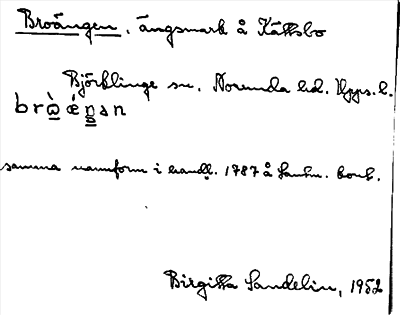 Broängen, ängsmark å Kättsbo
Björklinge sn. Norunda hd. Upps. l.
samma namnform i handl. 1787 å Lantm. kont.
Birgitta Sandelin, 1952